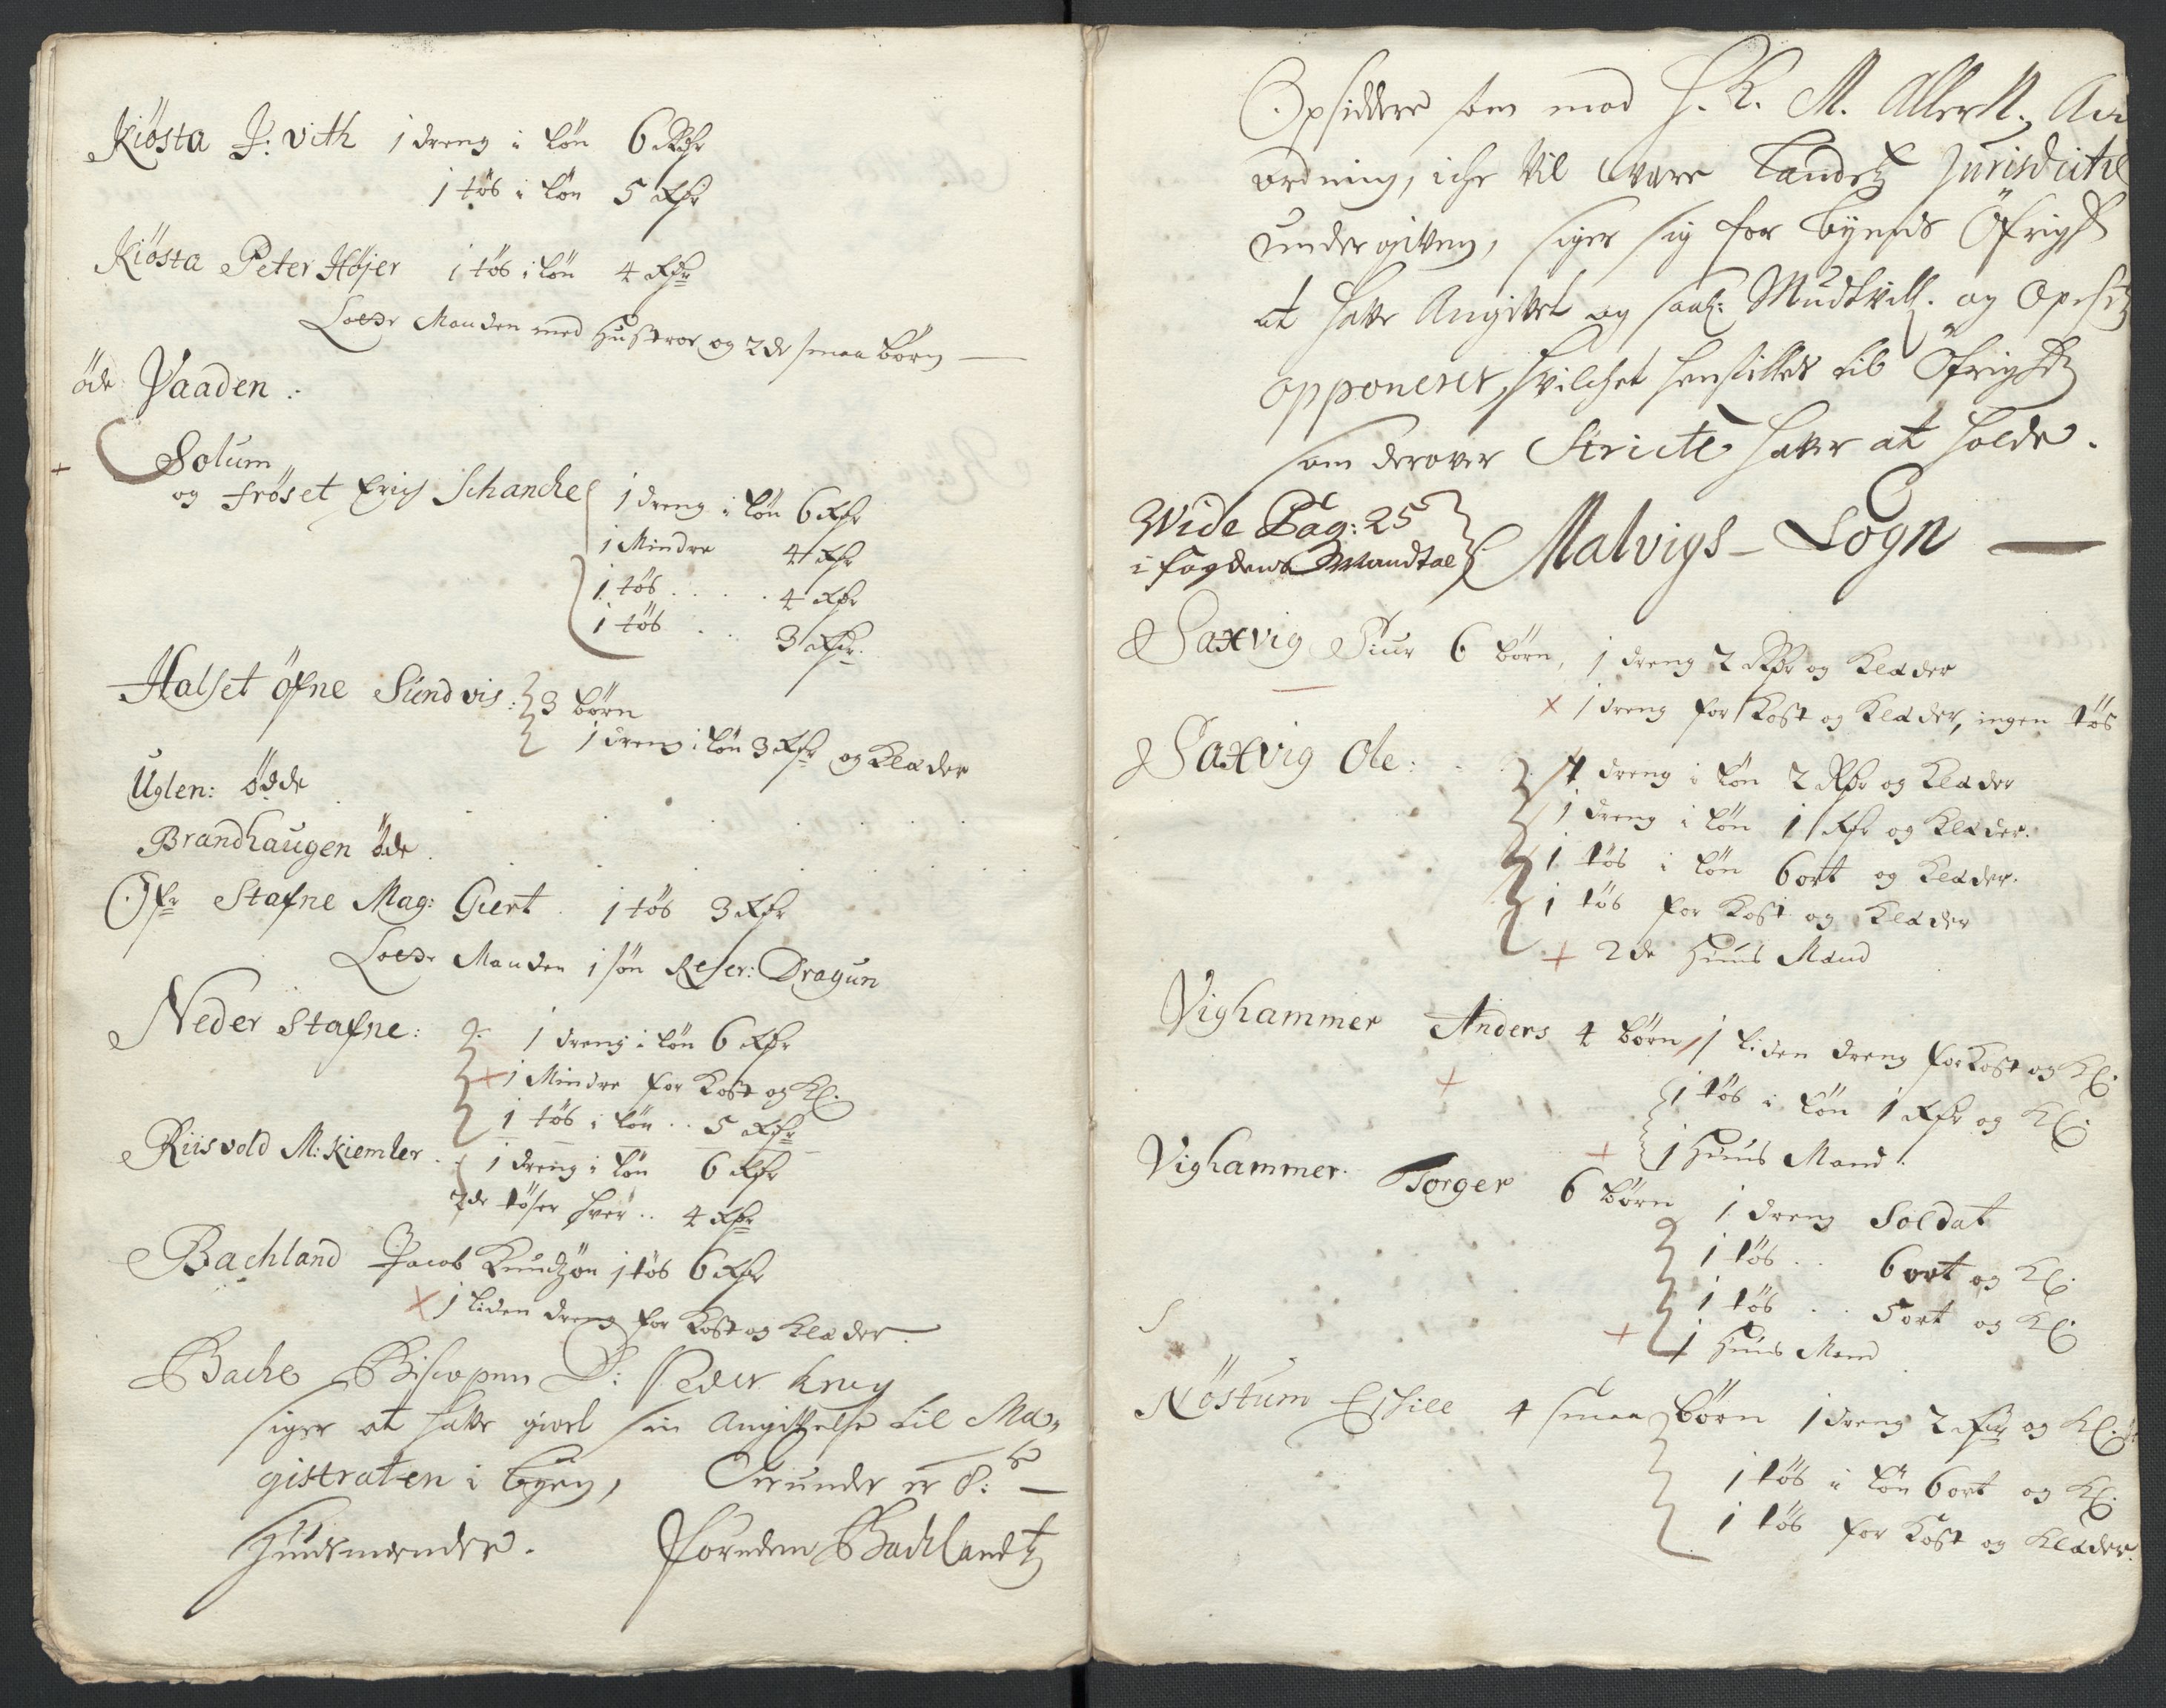 Kiösta J: Vith 1 dreng i Løn 6 Rdr
1 tös i Løn 5 Rdr
Kiösta Peter Höjer 1 tös i Løn 4 Rdr
Loedr Manden med Hustroe og 2de smaa Börn
öde Vaaden.
Solum
og fröset Erich Schanche 1 dreng i Løn 6 Rdr
1 Mindre 4 Rdr
1 tös . . . . 4 Rdr
1 tös . . 3 Rdr.
Halset öfne Sundvis: 3 börn
1 dreng i Løn 3 Rdr og Klæder
Uglen: öde
Brandhaugen öde.
Öfr Stafne Mag: Giert. 1 tös 3 Rdr
Loedr Manden 1 søn Reser: Dragun
Neder Stafne: 1 dreng i Løn 6 Rdr
+ 1 Mindre for Kost og Kl:
1 tös i Løn . . 5 Rdr
Riisvold M: Kiemler. 1 dreng i Løn 6 Rdr
2de töser hver . . 4 Rdr
Bachland Jacob Knudzøn 1 tös 6 Rdr
x 1 liden dreng for Kost og Klæder.
Bache Biscopen D: Peder Krog
siger at hafve giort sin Angifvelse til Ma,,
gistraten i byen, Oerunder er 8:
Huusmænder. foruden Bachlandtz
Opsiddere som mod H. K. M. Allern.
ordning, iche vil være Landetz Jurisdictio
undergifven, siger sig for byens Öfrigh
at hafve Angifvet og saal: Mudtvill. og
opponerer, hvilchet henstilles til Öfrighetz
som derover Stricte hafver at holde.
Wide Pag: 25
i fogdens Mandtal
Malvigs-Sogn —
Saxvig Siur 6 børn, 1 dreng 2 Rdr og Klæder
x 1 dreng for Kost og Klæder, ingen tös
Saxvig Ole: 1 dreng i Løn 2 Rdr og Klæder
1 dreng i Løn 1 Rdr og Klæder.
1 tös i Løn 6 ort og Klæder.
1 tös for Kost og Klæder
+ 2de Huus Mænd
Vighammer Anders 4 børn, 1 liden dreng for Kost og Kl:
+ 1 tös i Løn 1 Rdr og Kl:
+ 1 Huus Mand.
Vighammer. Torger 6 børn 1 dreng Soldat
1 tös . . 6 ort og Kl.
1 tös . . 5 ort og Kl:
+ 1 Huus Mand
Nöstum Eskill 4 smaa børn 1 dreng 2 Rdr og Kl:
1 tös i Løn 6 ort og Kl:
1 tös for Kost og Klæder.